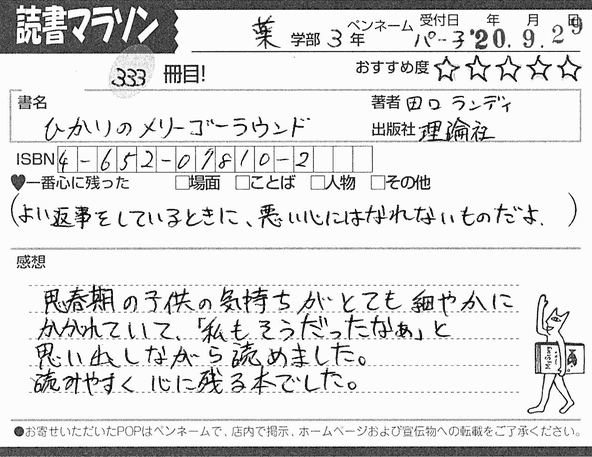 読書マラソン
薬 学部 3年 ペンネーム パー子 受付日 '20年 9月 29日
333 冊目! おすすめ度 ☆☆☆☆☆
書名 ひかりのメリーゴーラウンド 著者 田口ランディ
出版社 理論社
ISBN 4-652-07810-2
♥一番心に残った □場面 □ことば □人物 □その他
(よい返事をしているときに、悪い心にはなれないものだよ.)
感想
思春期の子供の気持ちがとても細やかに
かかれていて、「私もそうだったなぁ」と
思い出しながら読めました。
読みやすく心に残る本でした。
●お寄せいただいたPOPはペンネームで、店内で掲示、ホームページおよび宣伝物への転載をご了承ください。